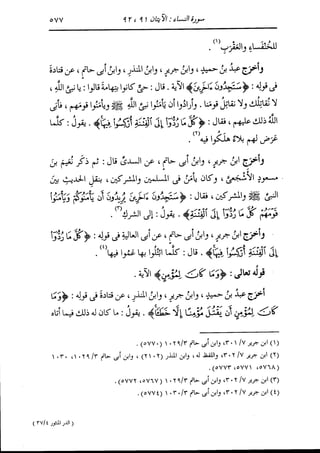 سورة النساء : الآيتان ٩١ ، ٩٢
٥٧٧
للخُنْفَساءِ والعَقْربِ(١) .
وأخرَج عبدُ بنُ حميدٍ ، وابنُ جريرٍ ، وابنُ المنذرِ ، وابنُ أبى حاتمٍ ، عن قتادةَ
فى قولِه : ﴿سَتَجِدُونَ ءَاخَرِينَ﴾ الآية . قال : حىٌّ كانوا بتِهامةَ قالوا : يا نبىَّ اللهِ ،
لا نُقاتِلُك ولا نقاتِلُ قومَنا . وأرادوا أن يأمَنوا نبىَّ اللهِ ﷺ ويأمَنوا قومَهم ، فأبَى
اللهُ ذلك عليهم ، فقال : ﴿كُلَّ مَا رُدُّوٓا إِلَى ٱلْفِتْنَةِ أُرْكِسُوا فِيهَا﴾ . يقولُ : كلَّما
عرَض لهم بلاءٌ هلَكوا فيه(٢) .
وأخرَج ابنُ جريرٍ ، وابنُ أبى حاتمٍ ، عن السدىِّ قال : ثم ذكَر نُعيمَ بنَ
مسعودٍ الأشجعىَّ ، وكان يأمَنُ فى المسلمين والمشركين ، ينقُلُ الحديثَ بينَ
النبىِّ ﷺ والمشركين ، فقال : ﴿سَتَجِدُونَ ءَاخَرِينَ يُرِيدُونَ أَن يَأْمَنُوكُمْ وَيَأْمَنُوا
قَوْمَهُمْ كُلَّ مَا رُدُّوٓا إِلَى ٱلْفِتْنَةِ﴾ . يقولُ : إلى الشركِ(٣) .
وأخرَج ابنُ جريرٍ ، وابنُ أبى حاتمٍ ، عن أبى العاليةِ فى قولِه : ﴿كُلَّ مَا رُدُّوٓا
إِلَى ٱلْفِتْنَةِ أُرْكِسُوا فِيهَا﴾ . قال : كلَّما ابتُلوا بها عَمُوا فيها(٤) .
قولُه تعالى : ﴿وَمَا كَانَ لِمُؤْمِنٍ﴾ الآية .
أخرَج عبدُ بنُ حميدٍ ، وابنُ جريرٍ ، وابنُ المنذرِ ، عن قتادةَ فى قولِه : ﴿وَمَا
كَانَ لِمُؤْمِنٍ أَن يَقْتُلَ مُؤْمِنًا إِلَّا خَطَـًٔا﴾ . يقولُ : ما كان له ذلك فيما أتاه
(١) ابن جرير ٣٠١/٧ ، وابن أبى حاتم ١٠٢٩/٣ (٥٧٧٠) .
(٢) ابن جرير ٣٠٢/٧ واللفظ له ، وابن المنذر (٢١٠٢) ، وابن أبى حاتم ١٠٢٩/٣ ، ١٠٣٠
(٥٧٦٨ ، ٥٧٧١ ، ٥٧٧٣) .
(٣) ابن جرير ٣٠٢/٧ ، وابن أبى حاتم ١٠٢٩/٣ (٥٧٦٧ ، ٥٧٧٢) .
(٤) ابن جرير ٣٠٢/٧ ، وابن أبى حاتم ١٠٣٠/٣ (٥٧٧٤) .
( الدر المنثور ٣٧/٤ )